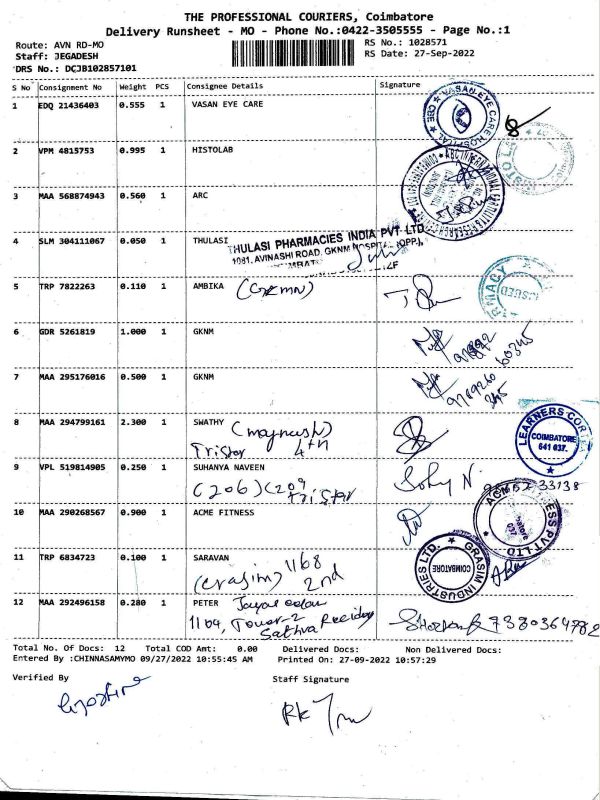 THE PROFESSIONAL COURIERS, Coimbatore
Delivery Runsheet - MO - Phone No.:0422-3505555 - Page No.:1
Route: AVN RD-MO RS No.: 1028571
Staff: JEGADESH RS Date: 27-Sep-2022
DRS No.: DCJB102857101
S No Consignment No Weight PCS Consignee Details Signature
1 EDQ 21436403 0.555 1 VASAN EYE CARE
VASAN EYE CARE HOSPITAL CBE
2 VPM 4815753 0.995 1 HISTOLAB
3 MAA 568874943 0.560 1 ARC
4 SLM 304111067 0.050 1 THULASI
THULASI PHARMACIES INDIA PVT LTD
1081, AVINASHI ROAD, GKNM HOSPITAL (OPP.),
5 TRP 7822263 0.110 1 AMBIKA (GKMN)
PHARMACY ISSUED
6 GDR 5261819 1.000 1 GKNM
7 MAA 295176016 0.500 1 GKNM
8 MAA 294799161 2.300 1 SWATHY
Tristar 4th
LEARNERS COIMBATORE 641 037.
9 VPL 519814905 0.250 1 SUHANYA NAVEEN
(206) (209 tristar
10 MAA 290268567 0.900 1 ACME FITNESS
ACME FITNESS PVT LTD
11 TRP 6834723 0.100 1 SARAVAN 1168
(Grasim) 2nd
GRASIM INDUSTRIES LTD. COIMBATORE
12 MAA 292496158 0.280 1 PETER
1104, Tower-2
7380364782
Total No. Of Docs: 12 Total COD Amt: 0.00 Delivered Docs: Non Delivered Docs:
Entered By :CHINNASAMYMO 09/27/2022 10:55:45 AM Printed On: 27-09-2022 10:57:29
Verified By Staff Signature